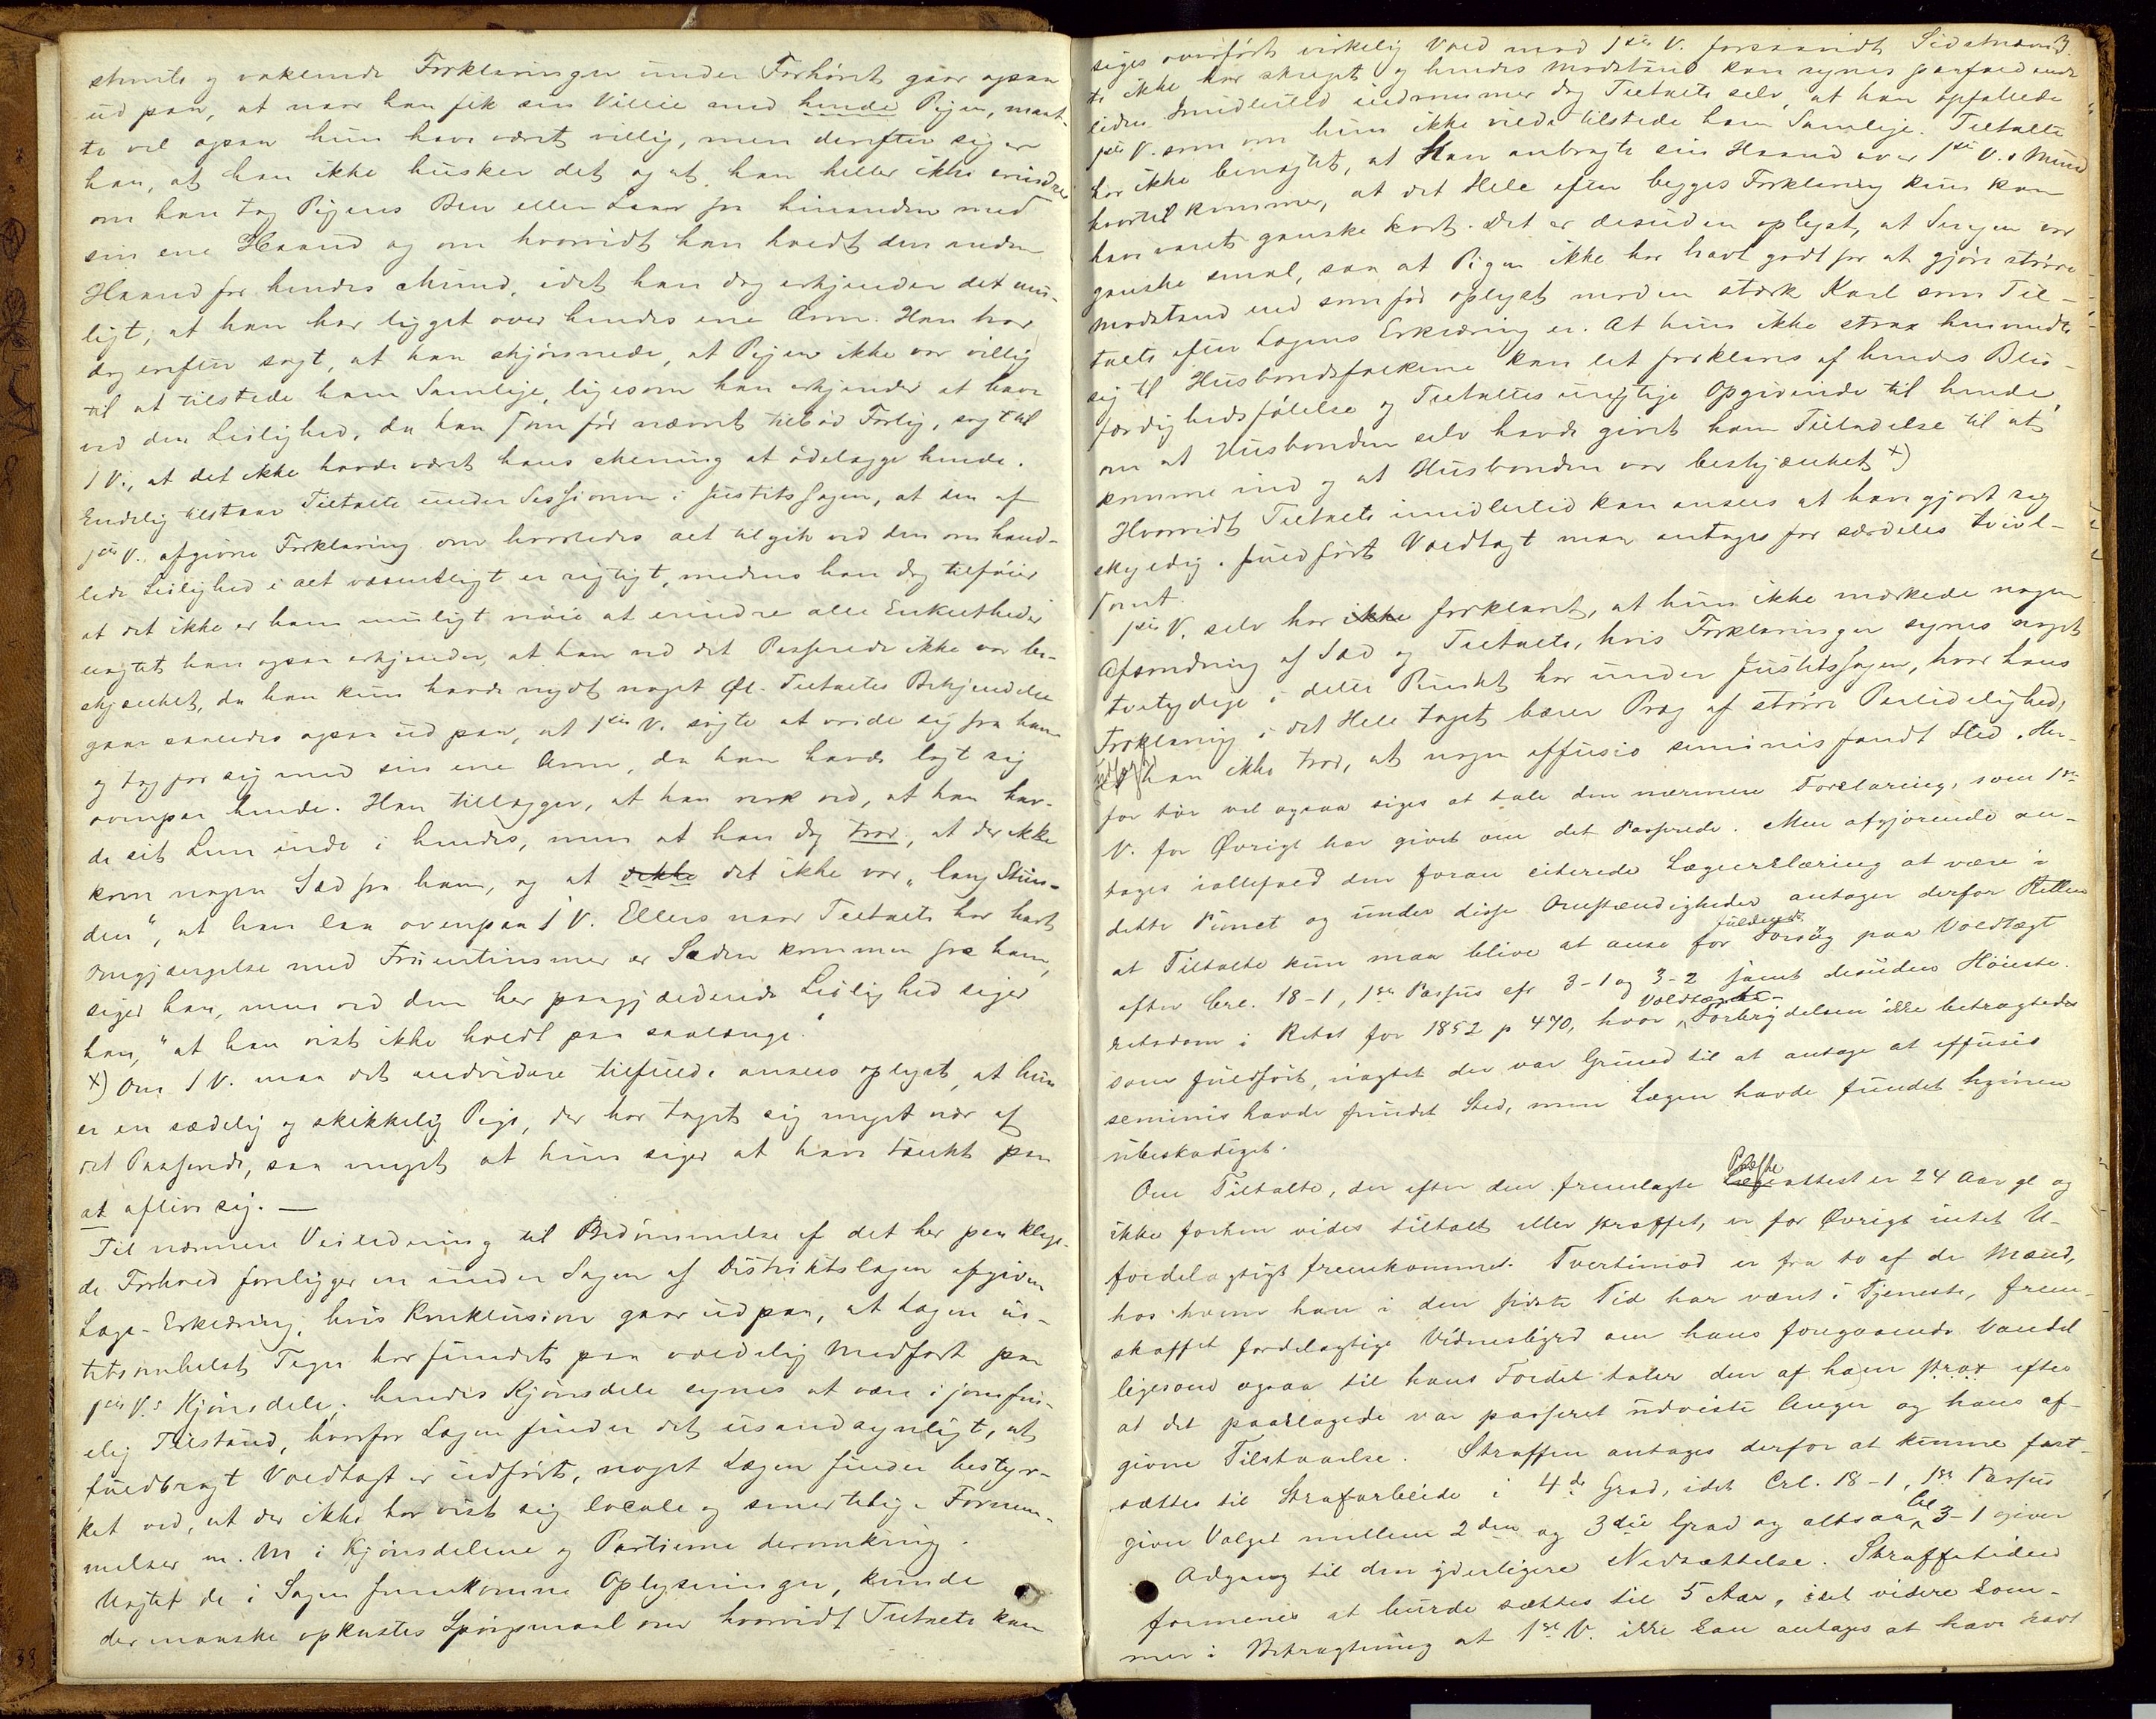 stemte og vaklende Forklaringer under Forhöret gaar ogsaa
ud paa, at naar han fik sin Villie med hende Pigen, maat-
te vel ogsaa hun have været villig, men derefter siger
han, at han ikke husker det og at han heller ikke erindrer
om han tog Pigens Ben eller Laar fra hinanden med
sin ene Haand og om hvorvidt han holdt den anden
Haand for hendes Mund, idet han dog erkjender det mu-
ligt, at han har ligget over hendes ene Arm. Han har
dog derefter sagt, at han skjönnede, at Pigen ikke var villig
til at tilstede ham Samleje, ligesom han erkjender at have
ved den Leilighed, da han som för nævnt tilböd Forlig, sagt til
1 V., at det ikke havde været hans Mening at ödelægge hende.
Endelig tilstaar Tiltalte under Sessionen i Justitssagen, at den af
1ste V. afgivne Forklaring om hvorledes det tilgik ved den om hand-
lede Leilighed i alt væsentligt er rigtigt, medens han dog tilföier
at det ikke er ham muligt nöie at erindre alle Enkeltheder
uagtet han ogsaa erkjender, at han ved det Passerede ikke var be-
skjænket, da han kun havde nydt noget Öl. Tiltaltes Bekjendelse
gaar saaledes ogsaa ud paa, at 1ste V. sögte at vride sig fra ham
og tog for sig med sin ene Arm, da han havde lagt sig
ovenpaa hende. Han tillægger, at han nok ved, at han hav-
de sit Lem inde i hendes, men at han dog tror, at der ikke
kom nogen Sæd fra ham, og at ikke det ikke var "lang Stun-
den", at han laa ovenpaa 1 V. Ellers naar Tiltalte har havt
Omgjængelse med Fruentimmer er Sæden kommen fra ham,
siger han, men ved den her paagjældende Leilighed siger
han, "at han vist ikke holdt paa saalænge."
x) Om 1 V. maa det endvidere tilföies ansees oplyst, at hun
er en sædelig og skikkelig Pige, der har taget sig meget nær af
det Passerede, saa meget at hun siger at have tænkt paa
at aflive sig. —
Til nærmere Veiledning til Bedömmelse af det her paaklage-
de Forhold foreligger en under Sagen af Distriktslægen afgiven
Læge-Erklæring, hvis Konklusion gaar ud paa, at Lægen in-
tetsomhelst Tegn har fundet paa voldelig Medfart paa
1ste V.s Kjönsdele, hendes Kjönsdele synes at være i jomfru-
elig Tilstand, hvorfor Lægen finder det usandsynligt, at
fuldbragt Voldtægt er udfört, noget Lægen finder bestyr-
ket ved, at der ikke har vist sig locale og smertelige Fornem-
melser m. M i Kjönsdelene og Partierne deromkring.
Uagtet de i Sagen fremkomne Oplysninger, kunde
der maaske opkastes Spörgsmaal om hvorvidt Tiltalte kan
siges overfört virkelig Vold mod 1ste V. forsaavidt Sidstnævn 3.
te ikke har skreget og hendes Modstand kan synes paafaldende
liden Imidlertid indrömmer dog Tiltalte selv, at han opfattede
1ste V. som om hun ikke vilde tilstede ham Samleje. Tiltalte
har ikke benægtet, at han anbragte sin Haand over 1ste V.s Mund
hvortil kommer, at det Hele efter begges Forklaring kun kan
have varet ganske kort. Det er desuden oplyst, at Sengen var
ganske smal, saa at Pigen ikke har havt godt for at gjöre större
Modstand end som för oplyst mod en stærk Karl som Til-
talte efter Lægens Erklæring er. At hun ikke strax henvendte
sig til Husbondsfolkene kan let forklares af hendes Blu-
færdighedsfölelse og Tiltaltes urigtige Opgivende til hende,
om at Husbonden selv havde givet ham Tilladelse til at
komme ind og at Husbonden var beskjænket x)
Hvorvidt Tiltalte imidlertid kan ansees at have gjort sig
skyldig i fuldfört Voldtægt maa antages for særdeles tvivl-
somt.
1ste V. selv har ikke forklaret, at hun ikke mærkede nogen
Afsondring af Sæd og Tiltalte, hvis Forklaringer synes noget
tvetydige i dette Punkt har under Justitssagen, hvor hans
Forklaring i det Hele taget bærer Præg af större Paalidelighed,
sagt han ikke tror, at nogen effusio seminis fandt Sted. Her-
for tör vel ogsaa siges at tale den nærmere Forklaring, som 1ste
V. for Övrigt har givet om det Passerede. Men afgjörende an-
tages ialfald den foran citerede Lægeerklæring at være i
dette Punct og under disse Omstændigheder antager derfor Retten
fuldendt
at Tiltalte kun maa blive at anse for Forsög paa Voldtægt
efter Crl. 18-1, 1ste Passus cfr 3-1 og 3-2 samt desuden Höieste-
Voldtægts-
retsdom i Retst for 1852 p 470, hvor Forbrydelsen ikke betragtedes
som fuldfört, uagtet der var Grund til at antage at effusio
seminis havde fundet Sted, men Lægen havde fundet hymen
ubeskadiget.
Præste
Om Tiltalte, der efter den fremlagte Lægeattest er 24 Aar gl og
ikke forhen vides tiltalt eller straffet, er for Övrigt intet U-
fordelagtigt fremkommet. Tvertimod er fra to af de Mænd,
hos hvem han i den sidste Tid har været i Tjeneste, frem-
skaffet fordelagtige Vidnesbyrd om hans foregaaende Vandel
ligesom ogsaa til hans Fordel taler den af ham strax efter
at det paaklagede var passeret udviste Anger og hans af-
givne Tilstaaelse. Straffen antages derfor at kunne fast-
sættes til Strafarbeide i 4de Grad, idet Crl. 18-1, 1ste Passus
Crl
giver Valget mellem 2den og 3die Grad og altsaa 3-1 giver
Adgang til den yderligere Nedsættelse. Straffetiden
formenes at burde sættes til 5 Aar, idet videre kom-
mer i Betragtning at 1ste V. ikke kan antages at have havt